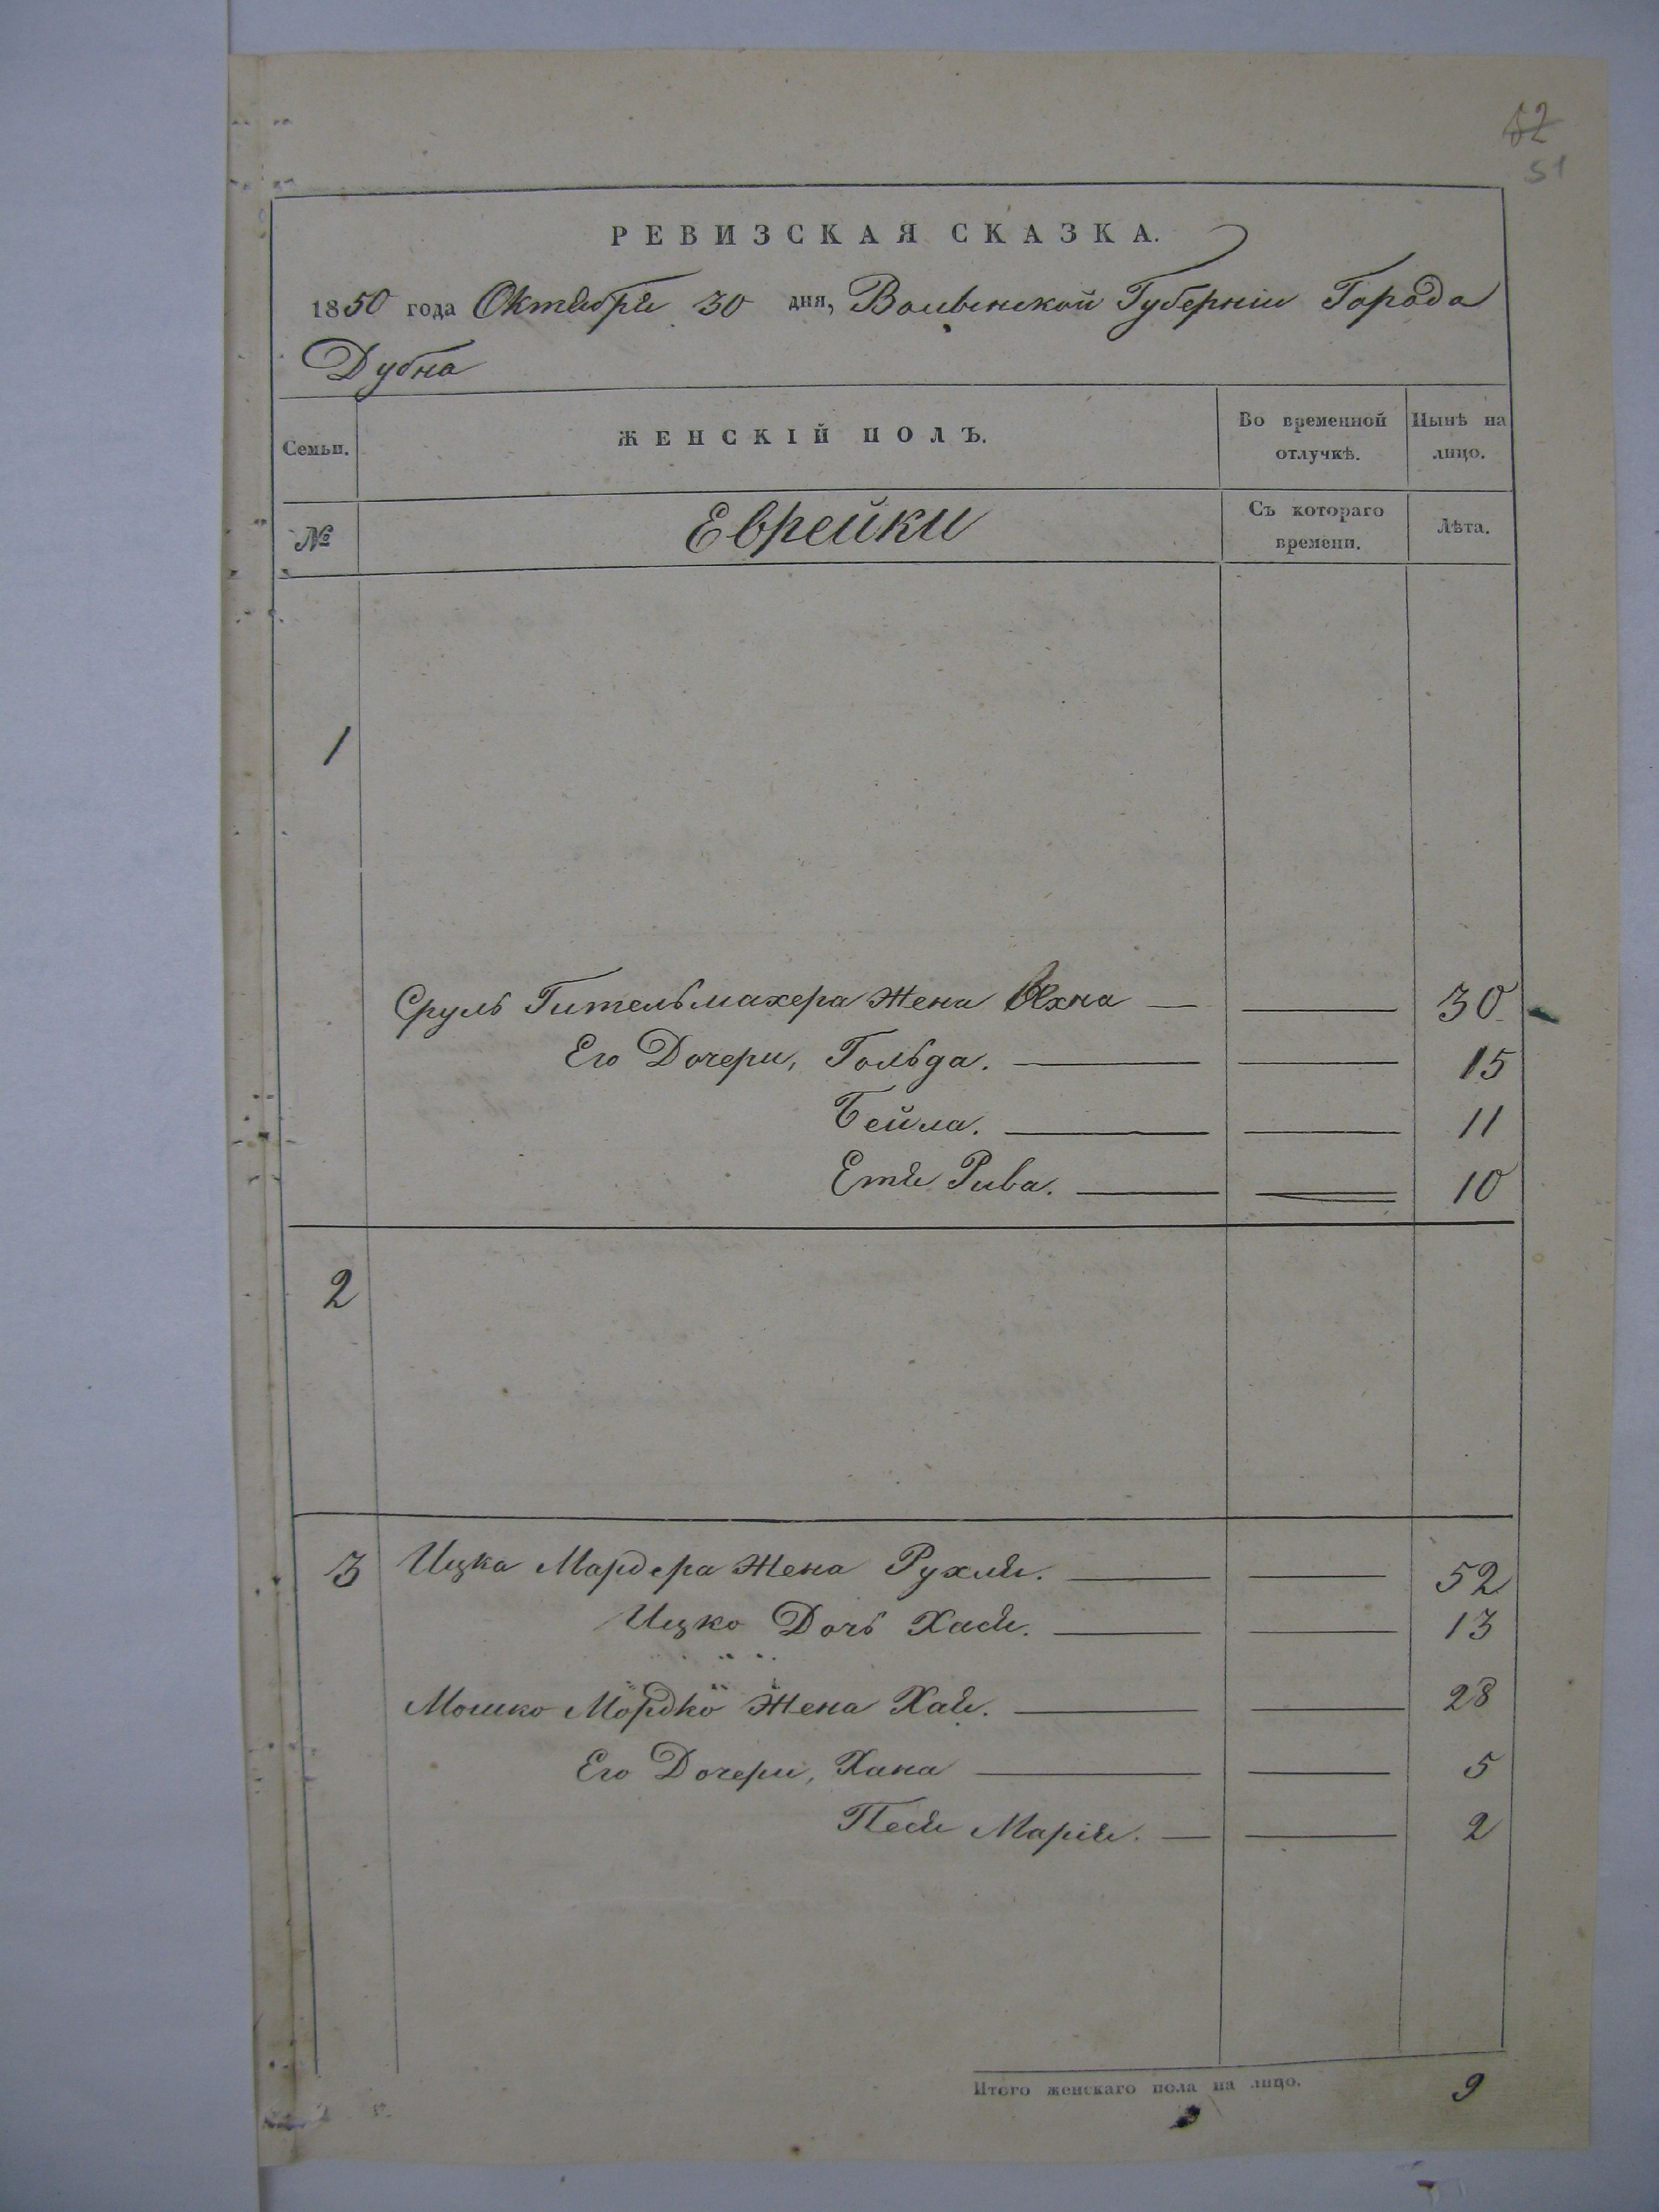 52
51
РЕВИЗСКАЯ СКАЗКА.
1850 года Октября 30 дня, Волынской Губерніи Города
Дубна
Семьи. ЖЕНСКІЙ ПОЛЪ. Во временной отлучкѣ. Нынѣ на лицо.
№ Еврейки Съ котораго времени. Лѣта.
1
Сруль Гительмахера Жена 30
Его Дочери, Гольда. 15
Бейла. 11
Етя Рива. 10
2
3 Ицка Мардера Жена Рухля. 52
Ицко Дочь Хася. 13
Мошко Мордко Жена Хая. 28
Его Дочери, Хана 5
Песя Марія. 2
Итого женскаго пола на лицо. 9